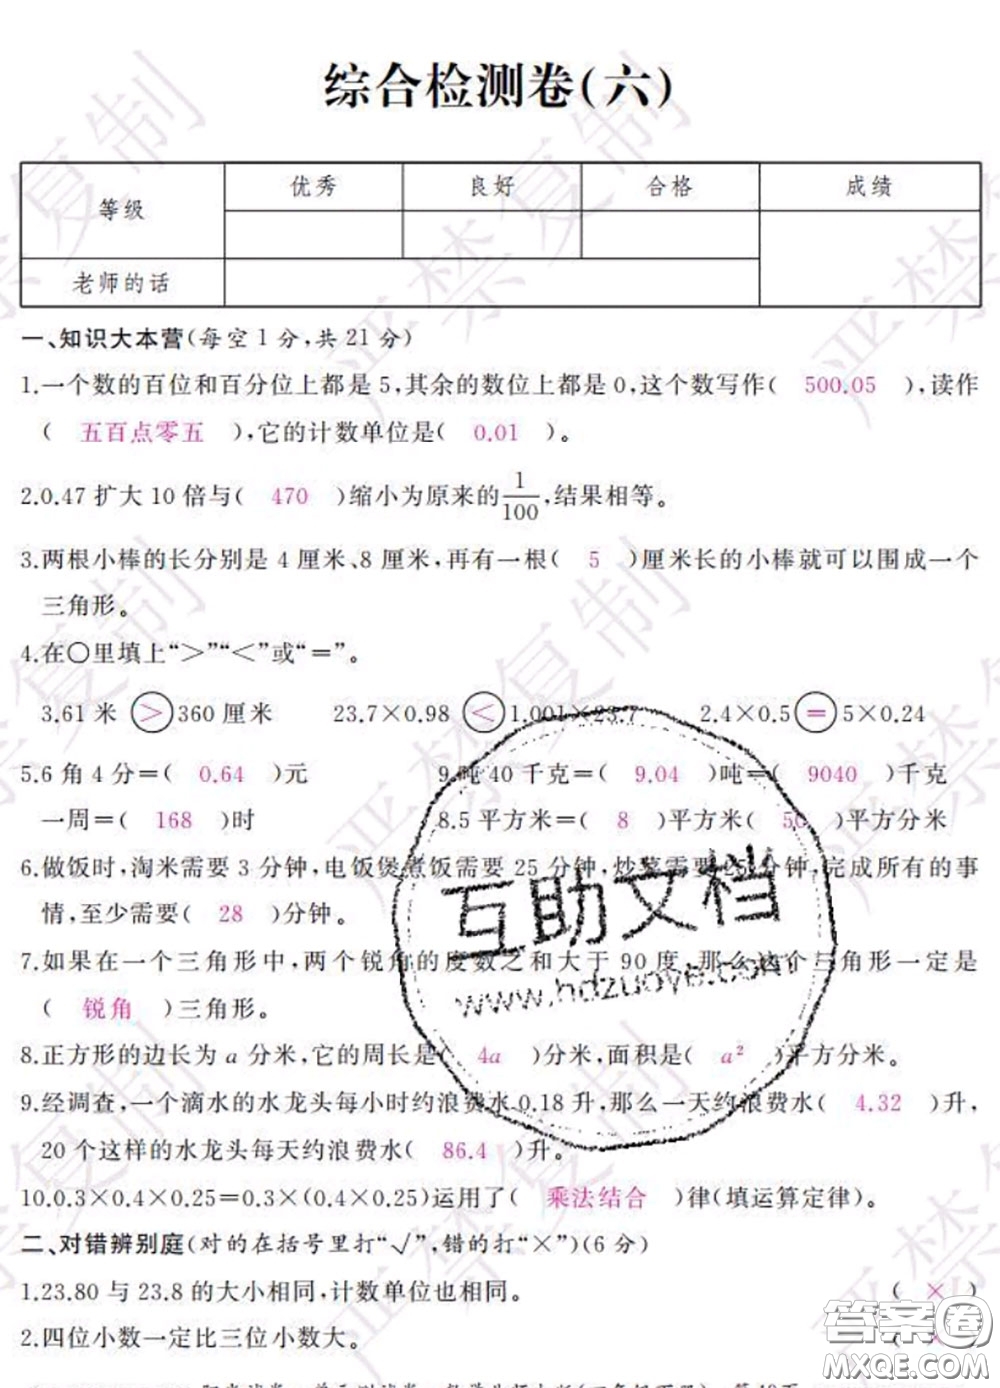 综合检测卷(六)
等级 优秀 良好 合格 成绩
老师的话
一、知识大本营(每空1分,共21分)
1.一个数的百位和百分位上都是5,其余的数位上都是0,这个数写作( 500.05 ),读作
( 五百点零五 ),它的计数单位是( 0.01 )。
2.0.47扩大10倍与( 470 )缩小为原来的1/100,结果相等。
3.两根小棒的长分别是4厘米、8厘米,再有一根( 5 )厘米长的小棒就可以围成一个
三角形。
4.在○里填上“>”“<”或“=”。
3.61米 > 360厘米 23.7×0.98 < 1.001×23.7 2.4×0.5 = 5×0.24
5.6角4分=( 0.64 )元 9吨40千克=( 9.04 )吨=( 9040 )千克
一周=( 168 )时 8.5平方米=( 8 )平方米( 50 )平方分米
6.做饭时,淘米需要3分钟,电饭煲煮饭需要25分钟,炒菜需要25分钟,完成所有的事
情,至少需要( 28 )分钟。
7.如果在一个三角形中,两个锐角的度数之和大于90度,那么这个三角形一定是
( 锐角 )三角形。
8.正方形的边长为a分米,它的周长是( 4a )分米,面积是( a² )平方分米。
9.经调查,一个滴水的水龙头每小时约浪费水0.18升,那么一天约浪费水( 4.32 )升,
20个这样的水龙头每天约浪费水( 86.4 )升。
10.0.3×0.4×0.25=0.3×(0.4×0.25)运用了( 乘法结合 )律(填运算定律)。
二、对错辨别庭(对的在括号里打“√”,错的打“×”)(6分)
1.23.80与23.8的大小相同,计数单位也相同。 ( × )
2.四位小数一定比三位小数大。 ( × )
互助文档
www.hdzuoye.com
答案圈
MXQE.COM
严禁复制